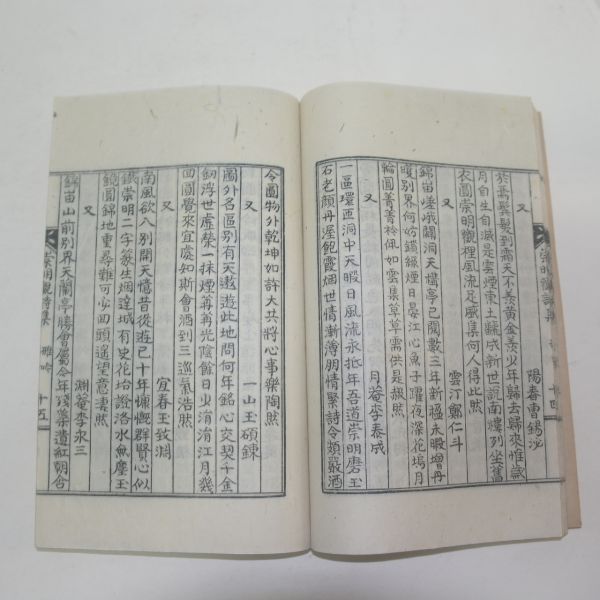 於焉鬂髮到霜天不羨黃金羨火年歸去歸來惟歲
月自生自滅是雲煙東土蹂成新世說南樓列坐舊
衣圓崇明觀裡風流足風集何人得此然
陽春曹錫泌
又
錦宙崷峨闢洞天構亭已閱數三年新醞未暇曾丹
竈別界何妨鐵綠煙日晏江心魚子躍夜深花塢月
輪圓菁菁衿佩如雲集草草需供是掇然
雲汀鄭仁斗
又
一區環匝洞中天暇日風流永抵年吾道崇明磨玉
石老顏丹渥飽霞烟世情漸薄朋情緊詩令頻嚴酒
令圓物外乾坤如許大共將心事樂陶然
月菴李泰成
又
圖外名區別有天遨遊此地問何年銘心交契千金
劒浮世虛榮一抹煙苒苒光陰餘日火涓涓江月幾
回圓覺來宜處知斯會酒到三巡氣浩然
一山王碩鍊
又
南風欲八別開天憶昔從遊已十年慷慨群賢心似
鐵崇明二字發生烟達城有史花拾證洛水無塵玉
鏡圓錦地重尋難可必回頭遥望意悽然
宜春玉致淵
又
錦宙山前別界天蘭亭勝會屬今年殘藥遺紅朝含
淵菴李永三
崇明觀詩集 雅吟 十五